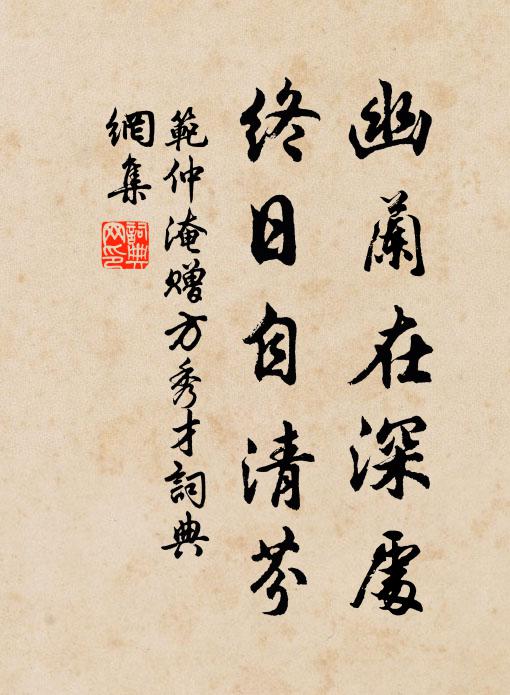 幽蘭在深處
終日自清芬
範仲淹贈方秀才詞典
網集
詞典
网印